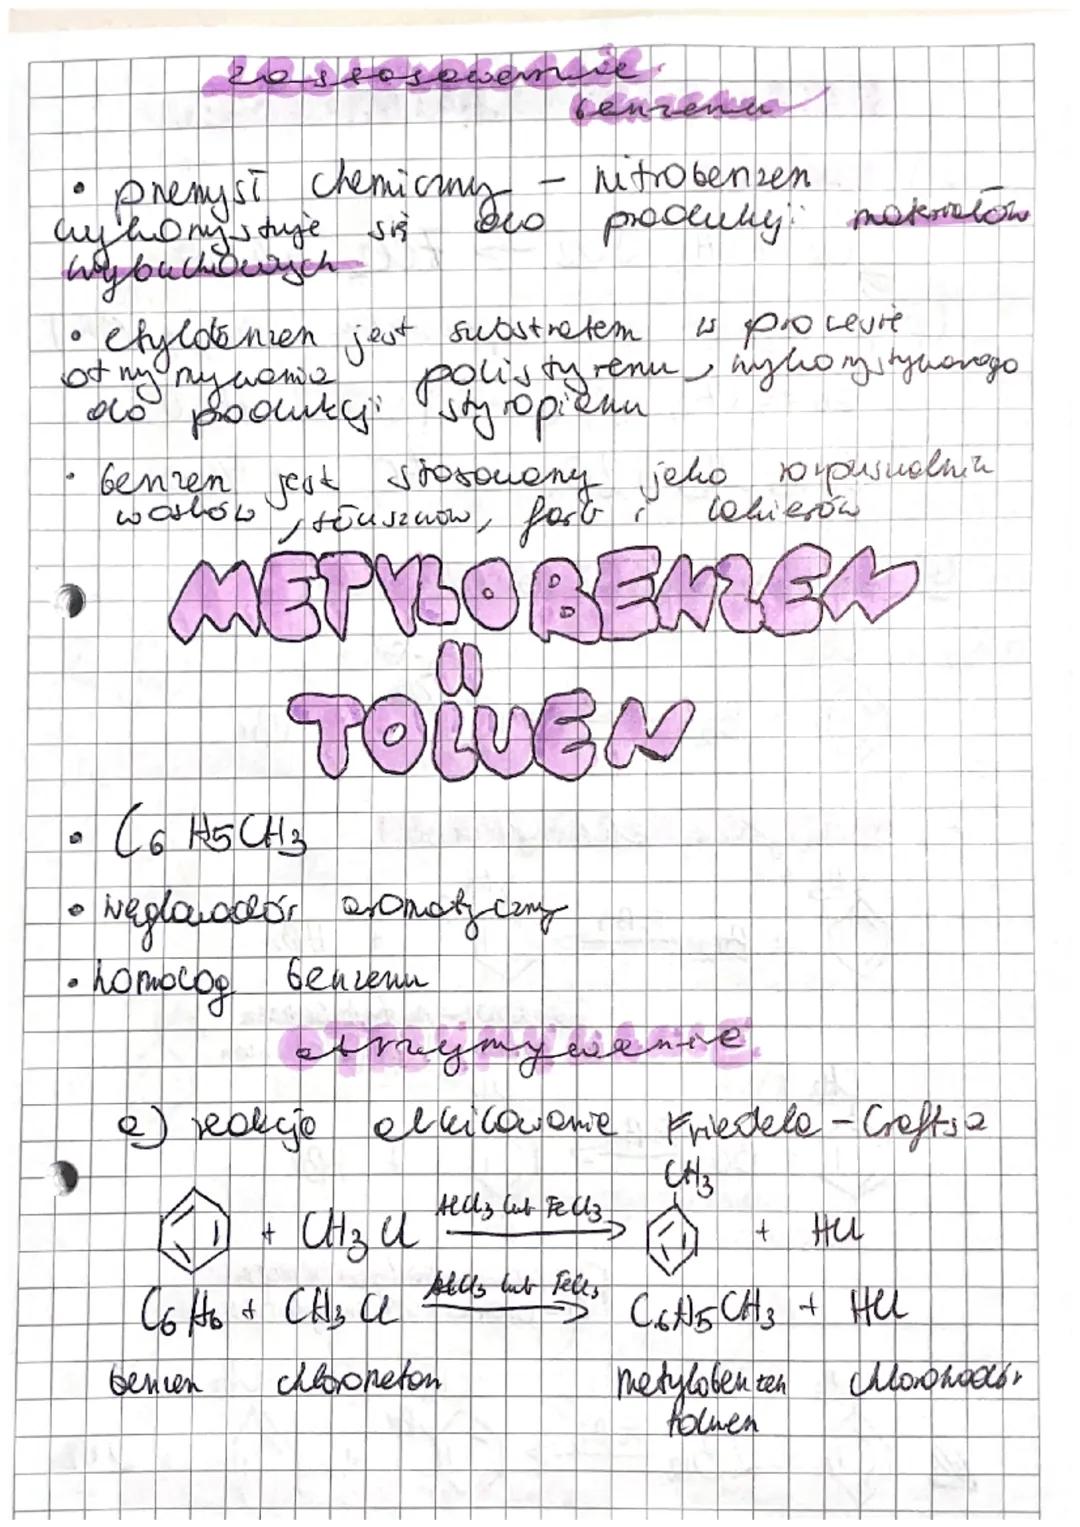 zastosowanie
benzenu
• przemysł chemiczny - nitrobenzen
wykorzystuje się do produkcji materiałów
wybuchowych
• etylobenzen jest substratem w procesie
otrzymywania polistyrenu, wykorzystywanego
do produkcji styropianu
• benzen jest stosowany jako rozpuszczalnik
wosków, tłuszczów, farb i lakierów
METYLOBENZEN
II
TOLUEN
• C6H5CH3
• węglowodór aromatyczny
• homolog benzenu
otrzymywanie
a) reakcja alkilowania Friedela-Craftsa
CH3
+ CH3Cl AlCl3 lub FeCl3 + HCl
C6H6 + CH3Cl AlCl3 lub FeCl3 C6H5CH3 + HCl
benzen chlorometan metylobenzen chlorowodór
toluen